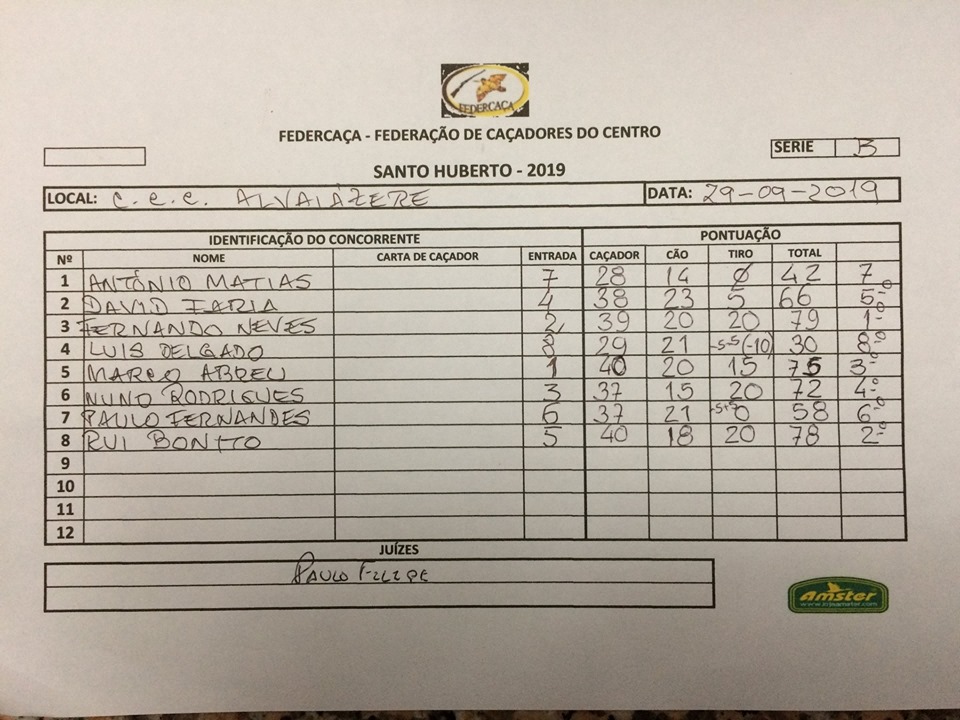 FEDERCAÇA
FEDERCAÇA - FEDERAÇÃO DE CAÇADORES DO CENTRO
SERIE B
SANTO HUBERTO - 2019
LOCAL: C.C.C. ALVAIÁZERE DATA: 29-09-2019
IDENTIFICAÇÃO DO CONCORRENTE PONTUAÇÃO
Nº NOME CARTA DE CAÇADOR ENTRADA CAÇADOR CÃO TIRO TOTAL
1 ANTÓNIO MATIAS 7 28 14 0 42 7º
2 DAVID FARIA 4 38 23 5 66 5º
3 FERNANDO NEVES 2 39 20 20 79 1º
4 LUIS DELGADO 8 29 21 -5-5(-10) 30 8º
5 MARCO ABREU 1 40 20 15 75 3º
6 NUNO RODRIGUES 3 37 15 20 72 4º
7 PAULO FERNANDES 6 37 21 -5+5 0 58 6º
8 RUI BONITO 5 40 18 20 78 2º
9
10
11
12
JUÍZES
PAULO FILIPE
Amster